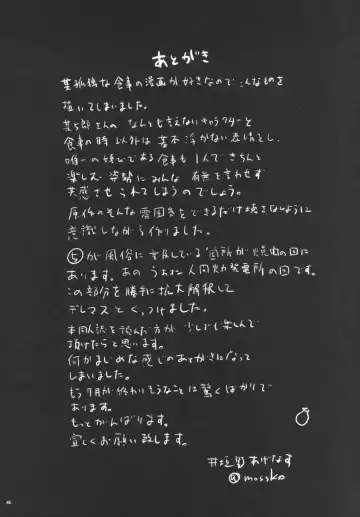 あとがき
某孤独な食事の漫画が好きなのでこんなものを
描いてしまいました。
某五郎さんのなんとも言えないキャラクターと
食事の時以外は基本浮かない表情をし、
唯一の喜びである食事も1人できちんと
楽しむ姿勢にみんな有無を言わせず
共感させられてしまうのでしょう。
原作のそんな雰囲気をできるだけ壊さないように
意識しながら作りました。
が風俗に言及している箇所が焼肉の回に
あります。あの うおォン 人間火力発電所の回です。
この部分を勝手に拡大解釈して
デレマスとくっつけました。
本同人誌を読んだ方が少しでも楽しんで
頂けたらと思います。
何かまじめな感じのあとがきになって
しまいました。
もう7月が終わりそうなことに驚くばかりで
あります。
もっとがんばります。
宜しくお願い致します。
あげなす
@mossko